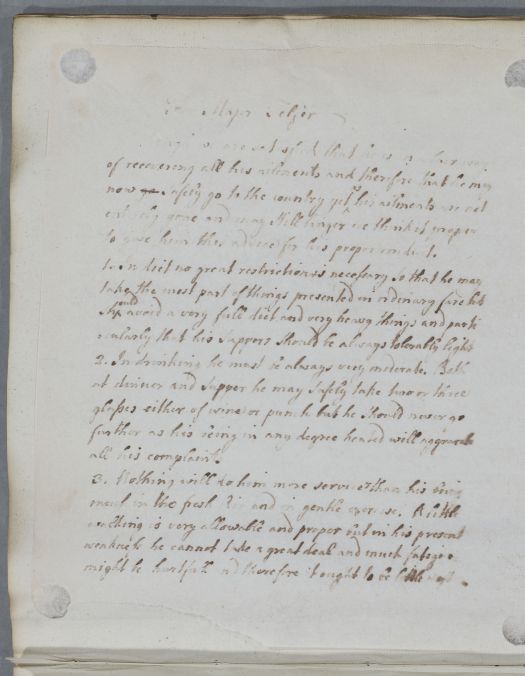 For Major Selzer
we are satisfied that he is in a fair way
of recovering all his ailments and therefore that he may
now safely go to the country yet as his ailments are not
entirely gone and may still linger we think it proper
to give him this advice for his proper conduct.
1. In diet no great restriction is necessary so that he may
take the most part of things presented in ordinary fare but
should avoid a very full diet and very heavy things and parti
cularly that his suppers should be always tolerably light
2. In drinking he must be always very moderate. Both
at dinner and supper he may safely take two or three
glasses either of wine or punch but he should never go
further as his being in any degree heated will aggravate
all his complaints.
3. Nothing will do him more service than his being
much in the fresh air and in gentle exercise. A little
walking is very allowable and proper but in his present
weakness he cannot take a great deal and much fatigue
might be hurtful and therefore it ought to be little